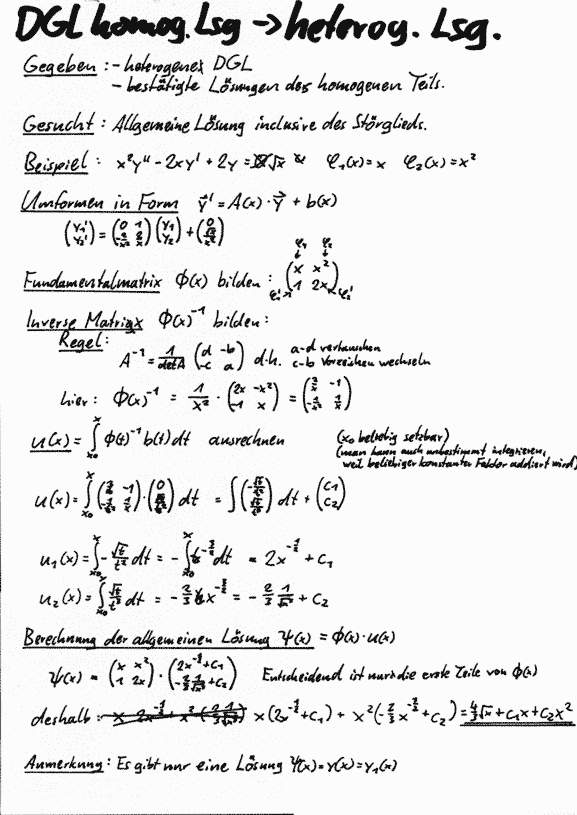 DGL homog. Lsg → heterog. Lsg.
Gegeben : - heterogenes DGL
- bestätigte Lösungen des homogenen Teils.
Gesucht : Allgemeine Lösung inclusive des Störglieds.
Beispiel : x²y'' - 2xy' + 2y = √x φ₁(x) = x φ₂(x) = x²
Umformen in Form y⃗' = A(x)·y⃗ + b(x)
(y₁' y₂') = (0 1 -2/x² 2/x) (y₁ y₂) + (0 √x/x²)
φ₁ φ₂
Fundamentalmatrix Φ(x) bilden : (x x² 1 2x)
φ₁' φ₂'
Inverse Matrix Φ(x)⁻¹ bilden :
Regel :
A⁻¹ = 1/detA (d -b -c a) d.h. a-d vertauschen
c-b Vorzeichen wechseln
hier : Φ(x)⁻¹ = 1/x² · (2x -x² -1 x) = (2/x -1 -1/x² 1/x)
u(x) = ∫ₓ₀ˣ Φ(t)⁻¹ b(t) dt ausrechnen (x₀ beliebig setzbar)
(man kann auch unbestimmt integrieren,
weil beliebiger konstanter Faktor addiert wird)
u(x) = ∫ₓ₀ˣ (2/t -1 -1/t² 1/t) · (0 √t/t²) dt = ∫ (-√t/t² √t/t³) dt + (c₁ c₂)
u₁(x) = ∫ₓ₀ˣ -√t/t² dt = -∫ₓ₀ˣ t^(-3/2) dt = 2x^(-1/2) + c₁
u₂(x) = ∫ₓ₀ˣ √t/t³ dt = -2/3 x^(-3/2) = -2/3 1/√x³ + c₂
Berechnung der allgemeinen Lösung Ψ(x) = Φ(x)·u(x)
Ψ(x) = (x x² 1 2x) · (2x^(-1/2)+c₁ -2/3 1/√x³+c₂) Entscheidend ist nur die erste Zeile von Φ(x)
deshalb : x(2x^(-1/2)+c₁) + x²(-2/3 x^(-3/2)+c₂) = 4/3√x + c₁x + c₂x²
Anmerkung : Es gibt nur eine Lösung Ψ(x) = y(x) = y₁(x)